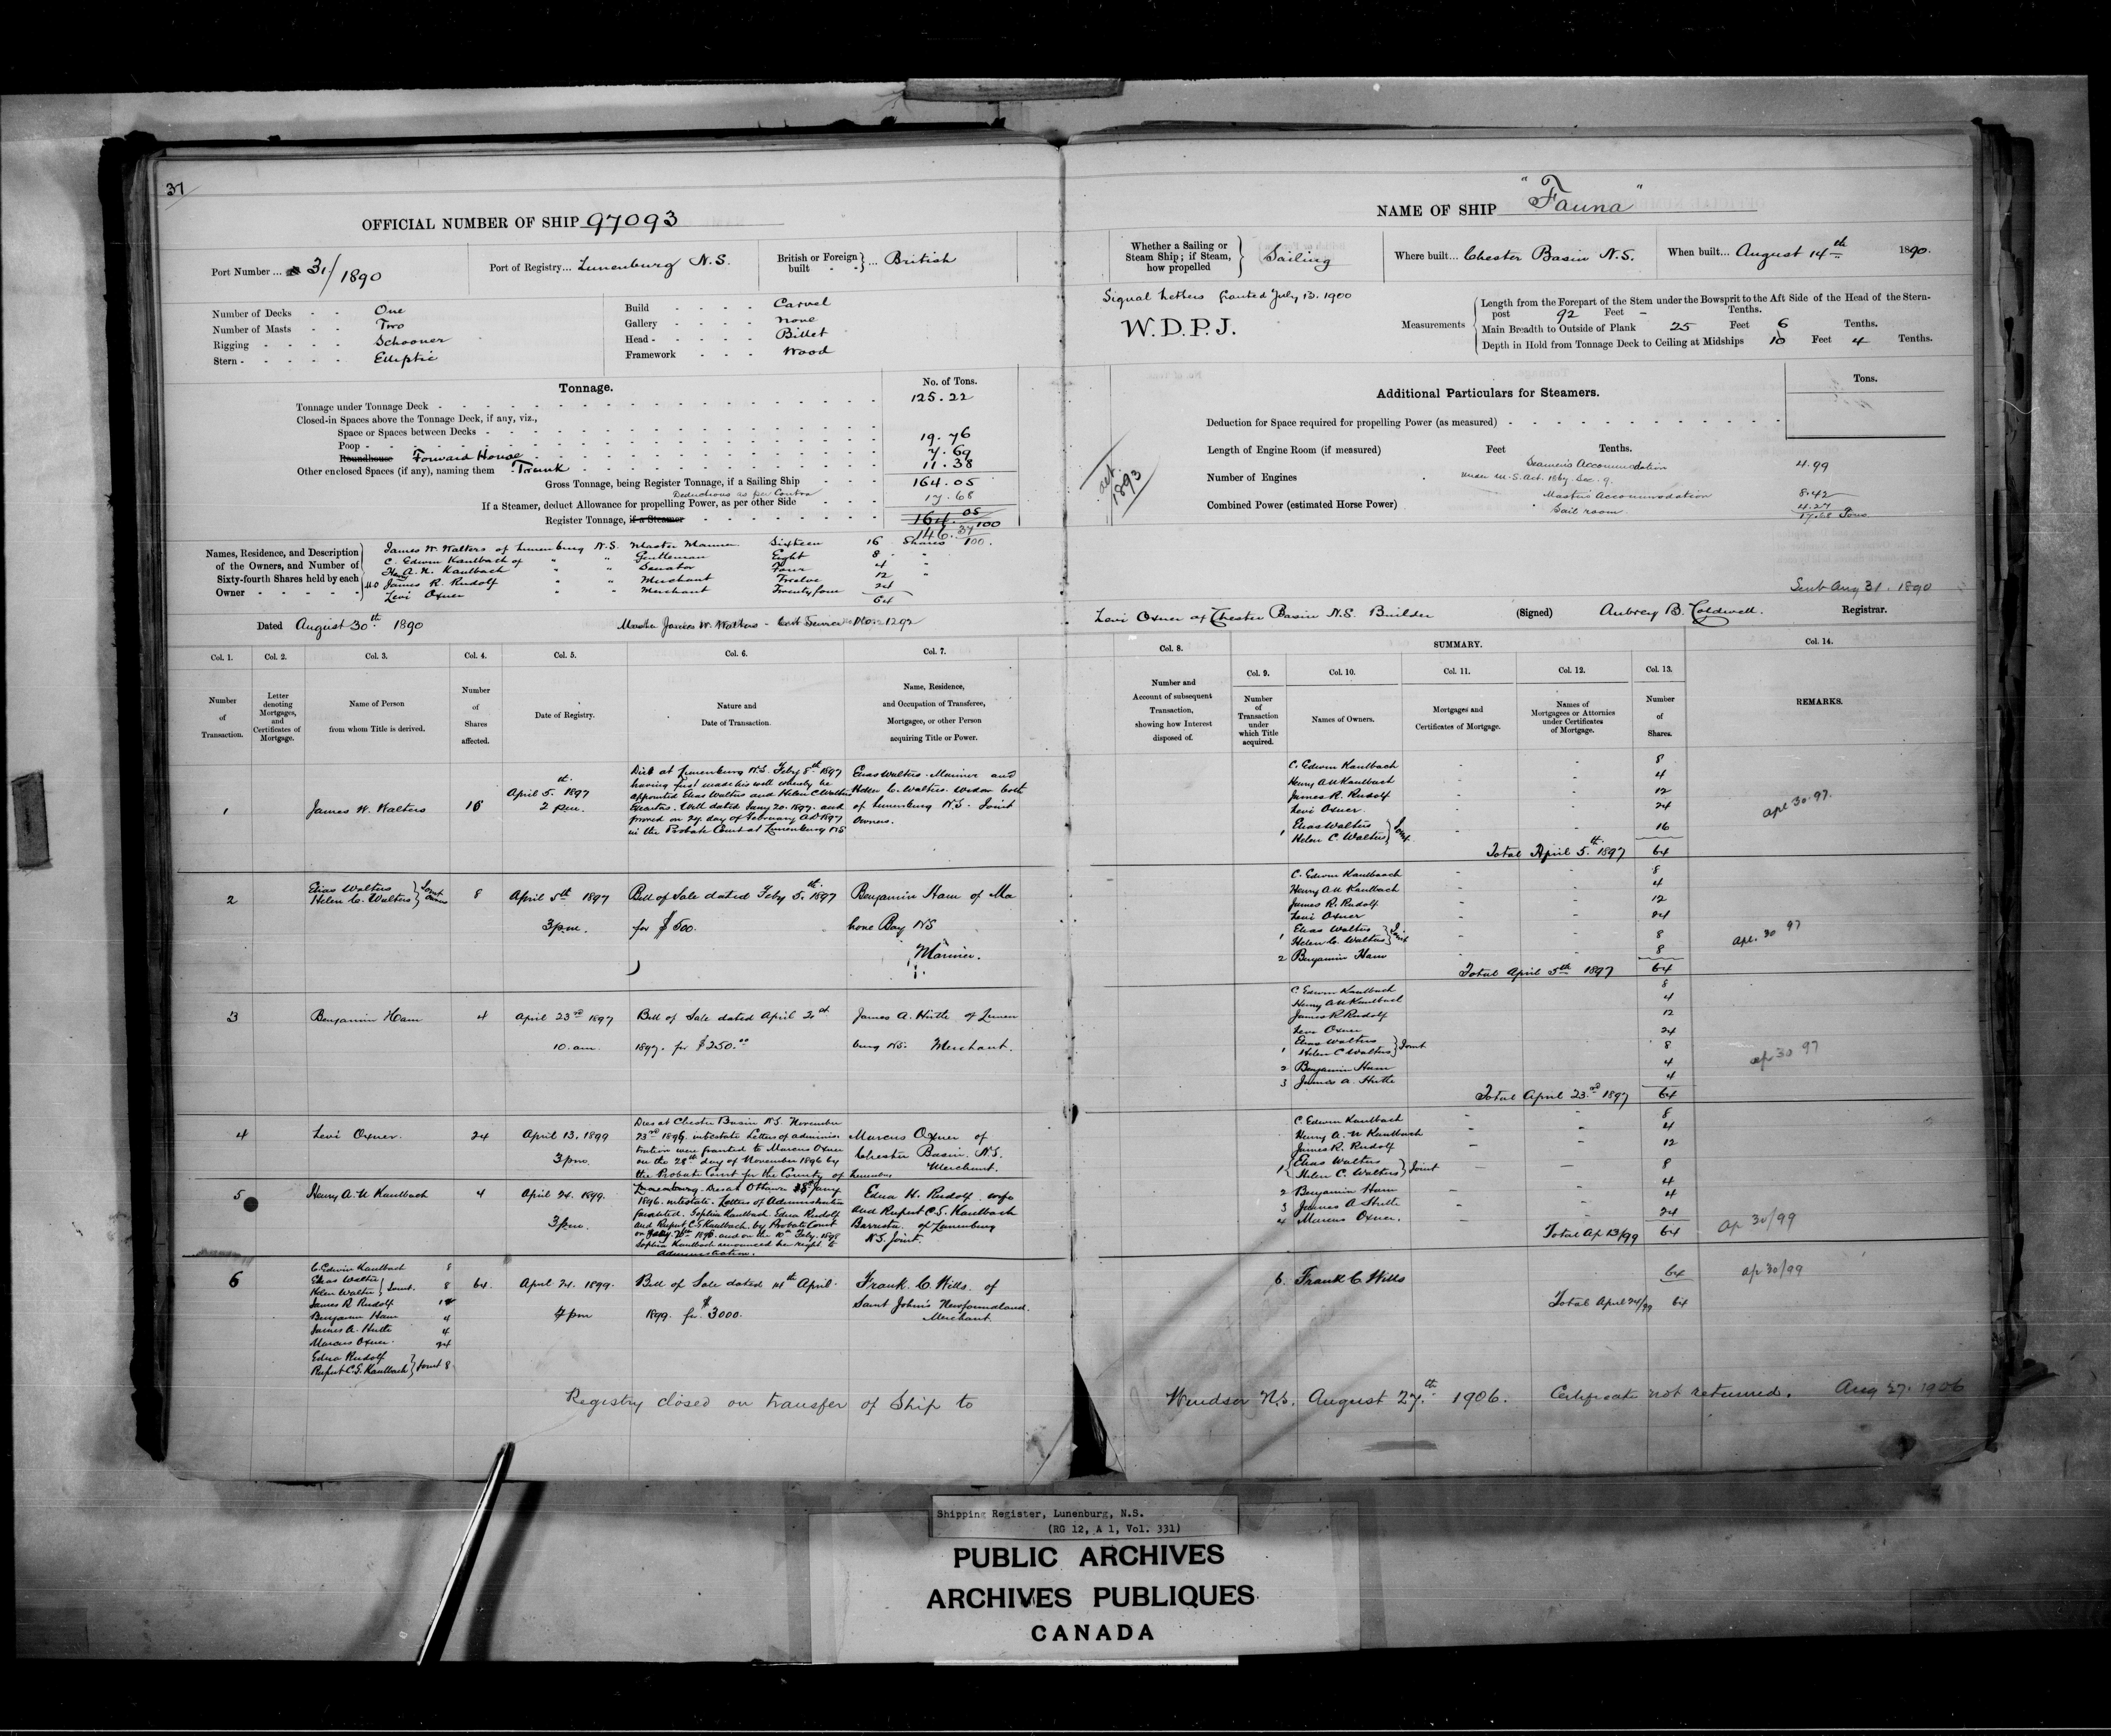 37
OFFICIAL NUMBER OF SHIP 97093
Port Number ... 31/1890
Port of Registry... Lunenburg N.S.
British or Foreign built } ... British
Number of Decks - - One
Number of Masts - - Two
Rigging - - - - Schooner
Stern - - - - - Elliptic
Build - - - - Carvel
Gallery - - - - none
Head - - - - - Billet
Framework - - - Wood
Tonnage.
No. of Tons.
Tonnage under Tonnage Deck 125.22
Closed-in Spaces above the Tonnage Deck, if any, viz.,
Space or Spaces between Decks
Poop 19.76
Roundhouse Forward House 7.69
Other enclosed Spaces (if any), naming them Trunk 11.38
Gross Tonnage, being Register Tonnage, if a Sailing Ship 164.05
Deductions as per Contra
If a Steamer, deduct Allowance for propelling Power, as per other Side 17.68
Register Tonnage, if a Steamer 164.05/100
146.37/100.
Names, Residence, and Description of the Owners, and Number of Sixty-fourth Shares held by each Owner
James W. Walters of Lunenburg N.S. Master Mariner Sixteen 16 Shares
C. Edwin Kaulbach of " " Gentleman Eight 8 "
Hon A. N. Kaulbach " " Senator Four 4 "
James R. Rudolf " " Merchant Twelve 12
Levi Oxner " " Merchant Twenty four 24
64
Dated August 30th 1890
Master James W. Walters - Cert Service No. 1292
Col. 1. Col. 2. Col. 3. Col. 4. Col. 5. Col. 6. Col. 7.
Number of Transaction.
Letter denoting Mortgages, and Certificates of Mortgage.
Name of Person from whom Title is derived.
Number of Shares affected.
Date of Registry.
Nature and Date of Transaction.
Name, Residence, and Occupation of Transferee, Mortgagee, or other Person acquiring Title or Power.
1 James W. Walters 16 April 5.th 1897 2 p.m.
Died at Lunenburg N.S. Feby 8th 1897
having first made his will whereby he
appointed Elias Walters and Helen C Walters
Executors. Will dated Jany 20. 1897. and
proved on 24. day of February AD 1897
in the Probate Court at Lunenburg NS
Elias Walters. Mariner and
Helen C. Walters. Widow both
of Lunenburg N.S. Joint
Owners.
2 Elias Walters
Helen C. Walters } Joint Owners 8 April 5th 1897 3 p.m.
Bill of Sale dated Feby 5.th 1897
for $500.
Benjamin Ham of Ma
hone Bay NS
Mariner.
3 Benjamin Ham 4 April 23rd 1897 10. am.
Bill of Sale dated April 2
1897. for $250.00
James A. Hirtle of Lunen
burg NS. Merchant.
4 Levi Oxner. 24 April 13, 1899 3 pm.
Dies at Chester Basin N.S. November
23rd 1896. intestate Letters of adminis
tration were granted to Marcus Oxner
on the 28th day of November 1896 by
the Probate Court for the County of Lunenburg
Marcus Oxner of
Chester Basin. N.S.
Merchant.
5 Henry A. N Kaulbach 4 April 24. 1899. 3 pm.
1896. intestate. Letters of Administration
granted. Sophia Kaulbach Edna Rudolf
and Rupert C S Kaulbach. by Probate Court
Sophia Kaulbach renounced her right to
Administration.
Edna H. Rudolf wife
and Rupert C.S. Kaulbach
Barrister. of Lunenburg
N.S. Joint.
6 C. Edwin Kaulbach 8
Elias Walters
Helen Walters } Joint. 8
James R Rudolf 12
Benjamin Ham 4
James A. Hirtle 4
Marcus Oxner. 24
Edna Rudolf
Rupert C.S. Kaulbach } Joint 8
64. April 24. 1899. 4 pm
Bill of Sale dated 14th April.
1899. for $3000.
Frank C. Wills. of
Saint John's Newfoundland.
Merchant.
Registry closed on transfer of Ship to
NAME OF SHIP "Fauna"
Whether a Sailing or Steam Ship; if Steam, how propelled } Sailing
Where built... Chester Basin N.S.
When built... August 14th 1890.
Signal Letters Granted July 13. 1900
W. D. P. J.
Measurements
Length from the Forepart of the Stem under the Bowsprit to the Aft Side of the Head of the Stern-
post 92 Feet - Tenths.
Main Breadth to Outside of Plank 25 Feet 6 Tenths.
Depth in Hold from Tonnage Deck to Ceiling at Midships 10 Feet 4 Tenths.
Additional Particulars for Steamers.
Tons.
Deduction for Space required for propelling Power (as measured)
Length of Engine Room (if measured) Feet Tenths.
Seamen's Accommodation 4.99
Number of Engines
under M.S. Act. 1867. Sec. 9.
Master's Accommodation 8.42
Combined Power (estimated Horse Power)
Sail room. 4.27
17.68 Tons
act. 1893
Sent Aug 31. 1890
Levi Oxner of Chester Basin N.S. Builder
(Signed) Aubrey B. Caldwell. Registrar.
Col. 8. SUMMARY. Col. 14.
Col. 9. Col. 10. Col. 11. Col. 12. Col. 13.
Number and Account of subsequent Transaction, showing how Interest disposed of.
Number of Transaction under which Title acquired.
Names of Owners.
Mortgages and Certificates of Mortgage.
Names of Mortgagees or Attornies under Certificates of Mortgage.
Number of Shares.
REMARKS.
C. Edwin Kaulbach - - 8
Henry A N Kaulbach - - 4
James R. Rudolf - - 12
Levi Oxner - - 24
1 Elias Walters
Helen C. Walters } Joint - - 16
Total April 5.th 1897 64
apl 30. 97.
C. Edwin Kaulbaach - - 8
Henry A N Kaulbach - - 4
James R. Rudolf - - 12
Levi Oxner - - 24
1 Elias Walters
Helen C. Walters } Joint - - 8
2 Benjamin Ham - - 8
Total April 5th 1897 64
apl. 30 97
C. Edwin Kaulbach 8
Henry A N Kaulbach 4
James R Rudolf 12
Levi Oxner 24
1 Elias Walters
Helen C Walters } Joint 8
2 Benjamin Ham 4
3 James A. Hirtle 4
Total April 23.rd 1897 64
ap 30 97
C. Edwin Kaulbach - - 8
Henry A. N Kaulbach - - 4
James R. Rudolf - - 12
1 Elias Walters
Helen C. Walters } Joint - - 8
2 Benjamin Ham - - 4
3 James A Hirtle 4
4 Marcus Oxner. - - 24
Total Ap 13/99 64
ap 30/99
6. Frank C. Wills 64
Total April 24/99 64
ap 30/99
Windsor N.S. August 27.th 1906. Certificate not returned. Aug 27. 1906
Shipping Register, Lunenburg, N.S.
(RG 12, A 1, Vol. 331)
PUBLIC ARCHIVES
ARCHIVES PUBLIQUES
CANADA